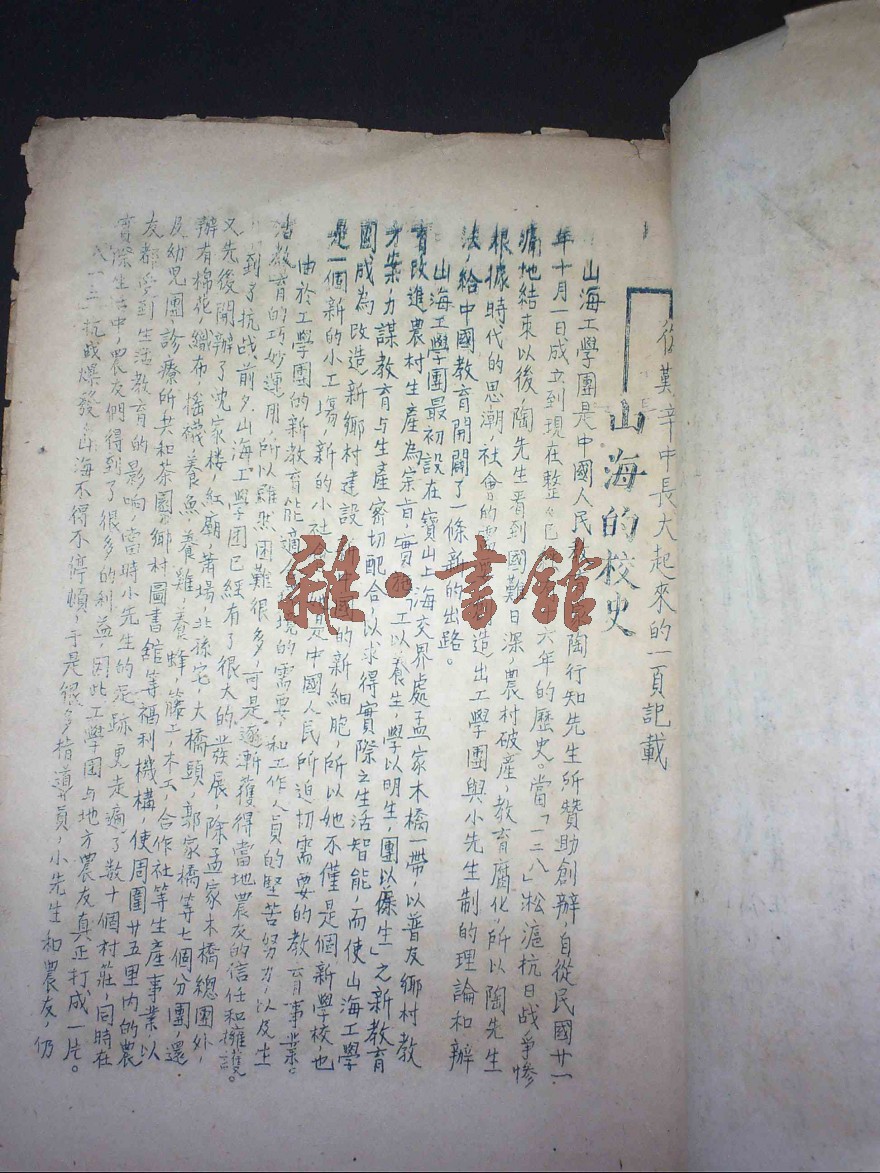 從艱辛中長大起來的一頁記載
山海的校史
山海工學團是中國人民 陶行知先生所贊助創辦，自從民國廿一
年十月一日成立到現在整整已 六年的歷史。當「一二八」淞滬抗日战爭慘
痛地結束以後，陶先生看到國難日深，農村破產，教育腐化，所以陶先生
根據時代的思潮，社會的需 造出工學團與小先生制的理論和辦
法，給中國教育開闢了一條新的出路。
山海工學團最初設在寶山上海交界處孟家木橋一帶，以普及鄉村教
育改進農村生產為宗旨，實 工以養生，學以明生，團以保生」之新教育
方案力謀教育与生產密切配合，以求得實際之生活智能，而使山海工學
團，成為改造新鄉村建設 中國的新細胞，所以她不僅是個新學校，也
是一個新的小工場，新的小社會 是中國人民所迫切需要的教育事業。
由於工學團的新教育能適 境的需要，和工作人員的堅苦努力，以及生
活教育的巧妙運用，所以雖然困難很多，可是逐漸獲得當地農友的信任和擁護。
到了抗战前夕，山海工學团已經有了很大的發展，除孟家木橋總團外，
又先後開辦了沈家楼，紅廟，蕭場，北孫宅，大橋頭，郭家橋等七個分團，還
辦有棉花，織布，搖襪，養魚，養雞，養蜂，籐工，木工，合作社等生產事業，以
及幼児團，診療所，共和茶園，鄉村圖書館等福利機構，使周圍廿五里内的農
友都學到生活教育的影响，當時小先生的足跡更走遍了数十個村莊，同時在
實際生活中，農友們得到了很多的利益，因此工學团与地方農友真正打成一片。
八一三抗战爆發，山海不得不停頓，于是很多指導員，小先生和農友，仍
雜·書館